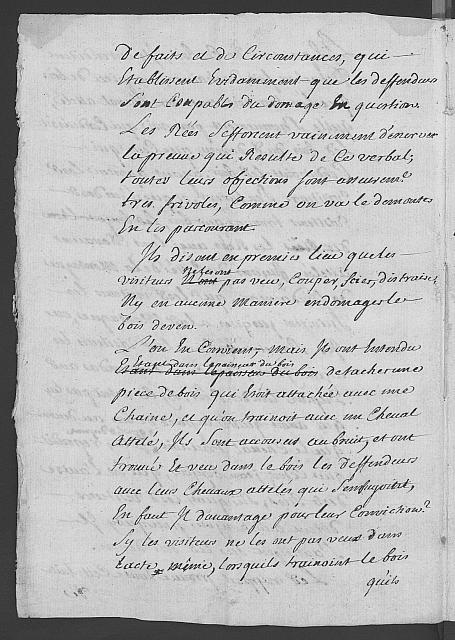 De faits et de Circonstances, qui
Etablissent Evidamment que les deffendeurs
Sont Coupables du domage En question
Les Rées S'efforcent vainement d'énerver
la preuve qui Resulte de Ce verbal,
toutes leurs objections sont assurem.t
tres frivoles, Comme on va le demontrer
En les parcourant
Ils disent en premier lieu que les
visiteurs ne les ont pas veu, Couper, Scier, distraire,
Ny en aucune Maniere endomager le
bois de ven.
L'on En Convient, mais Ils ont Entendu
Etant dans le paissent du bois
Etant dans le paissent du bois detacher une
piece de bois qui Etoit attachée avec une
Chaine, et qu'on trainoit avec un Cheval
Attelé, Ils Sont accourus au bruit, et ont
trouvé Et veu dans le bois les deffendeurs
avec leurs Chevaux attelés qui S'enfuyoient,
En faut Il davantage pour leur Conviction?
Sy les visiteurs ne les ont pas veus dans
l'acte même, lorsqu'ils trainoint le bois
qu'ils